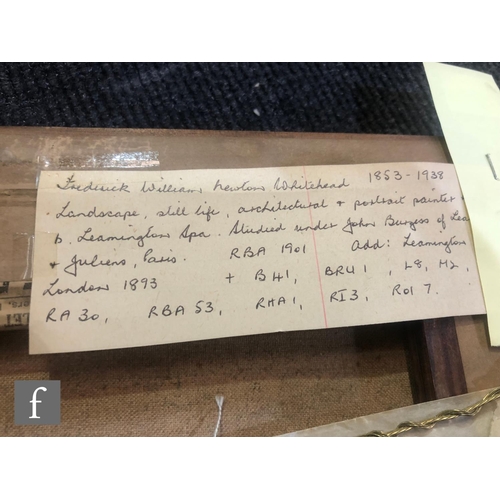 Frederick William Newton Whitehead 1853-1938
Landscape, still life, architectural + portrait painter
b. Leamington Spa. Studied under John Burgess of Lea
+ Juliens, Paris. RBA 1901 Add: Leamington
London 1893 + B41, BRU1, L8, M2,
RA30, RBA53, RHA1, RI3, ROI7.
f